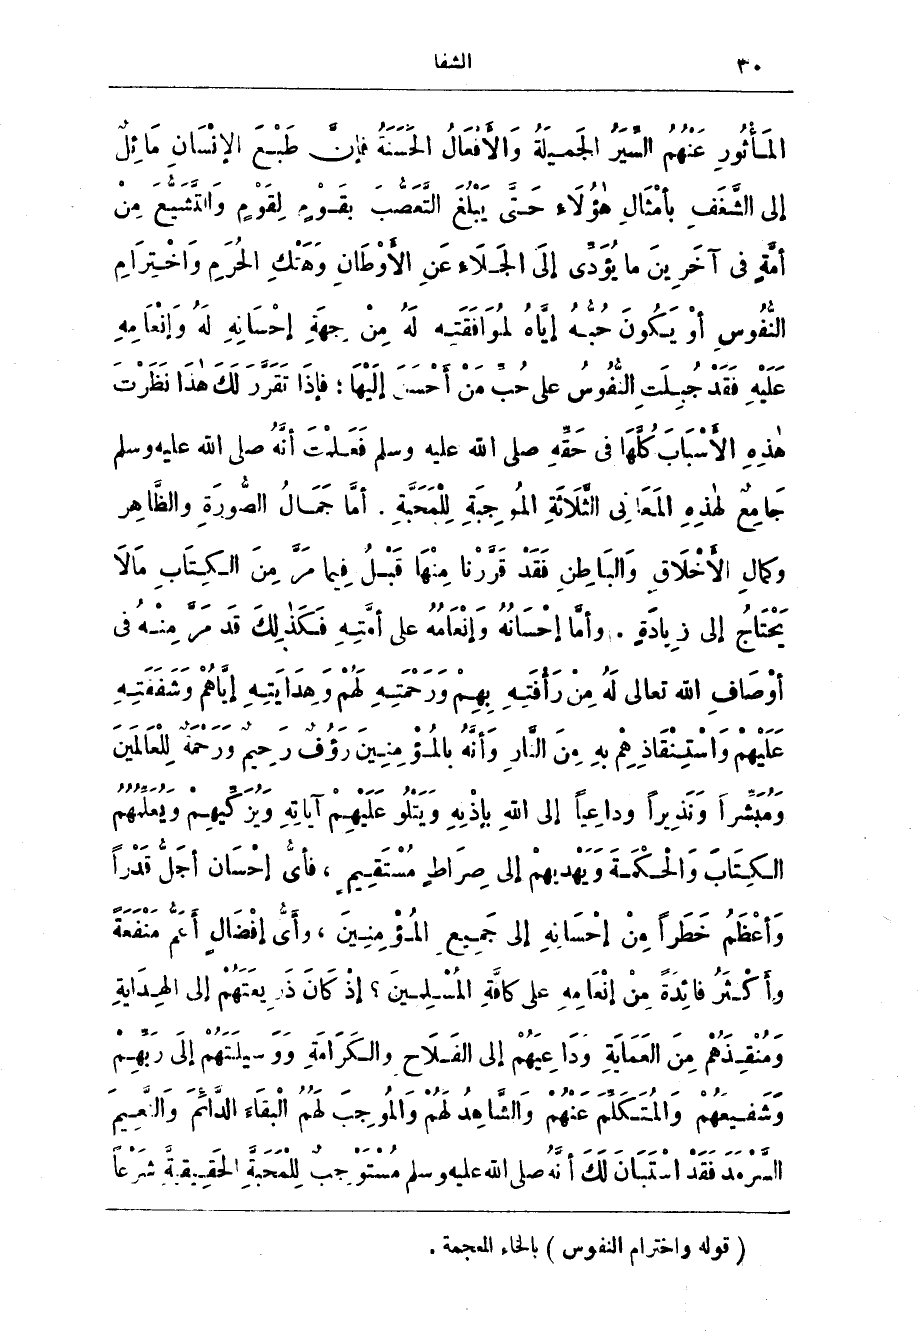 ٣٠ الشفا
المَأْثُورِ عَنْهُمُ السِّيَرُ الجَمِيلَةُ وَالأَفْعَالُ الحَسَنَةُ فإِنَّ طَبْعَ الإنْسَانِ مَائِلٌ
إلى الشَّغَفِ بِأمْثَالِ هٰؤُلَاءِ حَتَّى يَبْلُغَ التَّعَصُّبَ بِقَوْمٍ لِقَوْمٍ وَالتَّشَيُّعَ مِنْ
أمَّةٍ فى آخَرِينَ ما يُؤَدِّى إلَى الجَلَاءِ عَنِ الأَوْطَانِ وَهَتْكِ الحُرَمِ وَاخْتِرَامِ
النُّفُوسِ أوْ يَكُونَ حُبُّهُ إيَّاهُ لمُوَافَقَتِهِ لَهُ مِنْ جِهَةِ إحْسَانِهِ لَهُ وَإنْعَامِهِ
عَلَيْهِ فَقَدْ جُبِلَتِ النُّفُوسُ على حُبِّ مَنْ أحْسَنَ إلَيْهَا ؛ فإذَا تَقَرَّرَ لَكَ هٰذَا نَظَرْتَ
هٰذِهِ الأَسْبَابَ كُلَّهَا فى حَقِّهِ صلى الله عليه وسلم فَعَلِمْتَ أنَّهُ صلى الله عليه وسلم
جَامِعٌ لِهٰذِهِ المَعَانِى الثَّلَاثَةِ المُوجِبَةِ لِلْمَحَبَّةِ . أمَّا جَمَالُ الصُّورَةِ والظَّاهِرِ
وكمَالِ الأَخْلَاقِ وَالبَاطِنِ فَقَدْ قَرَّرْنا مِنْهَا قَبْلُ فِيما مَرَّ مِنَ الكِتَابِ مَالَا
يَحْتَاجُ إلى زِيادَةٍ . وأمَّا إحْسَانُهُ وَإنْعَامُهُ على أمَّتِهِ فَكَذٰلِكَ قَد مَرَّ مِنْهُ فى
أوْصَافِ الله تعالى لَهُ مِنْ رَأفَتِهِ بِهِمْ وَرَحْمَتِهِ لَهُمْ وَهِدَايَتِهِ إيَّاهُمْ وَشَفَقَتِهِ
عَلَيْهِمْ وَاسْتِنْقَاذِهِمْ بِهِ مِنَ النَّارِ وَأنَّهُ بِالمُؤْمِنِينَ رَؤُفٌ رَحِيمٌ وَرَحْمَةٌ لِلْعَالَمِينَ
وَمُبَشِّراً وَنَذِيراً وداعِياً إلى اللهِ بِإذْنِهِ وَيَتْلُو عَلَيْهِمْ آيَاتِهِ وَيُزَكِّيهِمْ وَيُعَلِّمُهُم
الكِتَابَ وَالْحِكْمَةَ وَيَهْدِيهِمْ إلى صِرَاطٍ مُسْتَقِيمٍ ، فأىُّ إحْسَان أجَلُّ قَدْراً
وَأعْظَمُ خَطَراً مِنْ إحْسَانِهِ إلى جَمِيعِ المُؤْمِنِينَ ، وأىُّ إفْضَالٍ أعَمُّ مَنْفَعَةً
وأكْثَرُ فائِدَةً مِنْ إنْعَامِهِ على كافَّةِ المُسْلِمِينَ ؟ إذْ كانَ ذَرِيعَتَهُمْ إلى الهِدَايَةِ
وَمُنْقِذَهُمْ مِنَ العَمَايَةِ وَدَاعِيَهُمْ إلى الفَلَاحِ والكَرَامَةِ وَوَسِيلَتَهُمْ إلَى رَبِّهِمْ
وَشَفِيعَهُمْ وَالمُتَكَلِّمَ عَنْهُمْ وَالشَّاهِدَ لَهُمْ وَالمُوجِبَ لَهُمُ البَقَاءَ الدَّائِمَ وَالنَّعِيمَ
السَّرْمَدَ فَقَدْ اسْتَبَانَ لَكَ أنَّهُ صلى الله عليه وسلم مُسْتَوْجِبٌ لِلْمَحَبَّةِ الحَقِيقِيَّةِ شَرْعاً
( قوله واخترام النفوس ) بالخاء المعجمة .